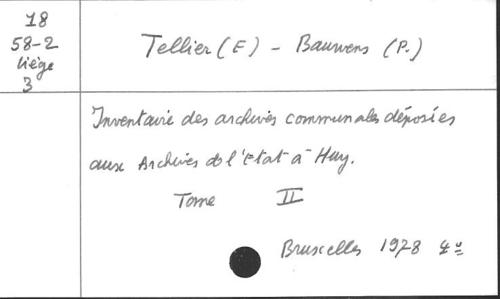 18
58-2
Liège
3
Tellier (E) - Bauwens (P.)
Inventaire des archives communales déposées
aux Archives de l'Etat à Huy.
Tome II
Bruxelles 1978 4°